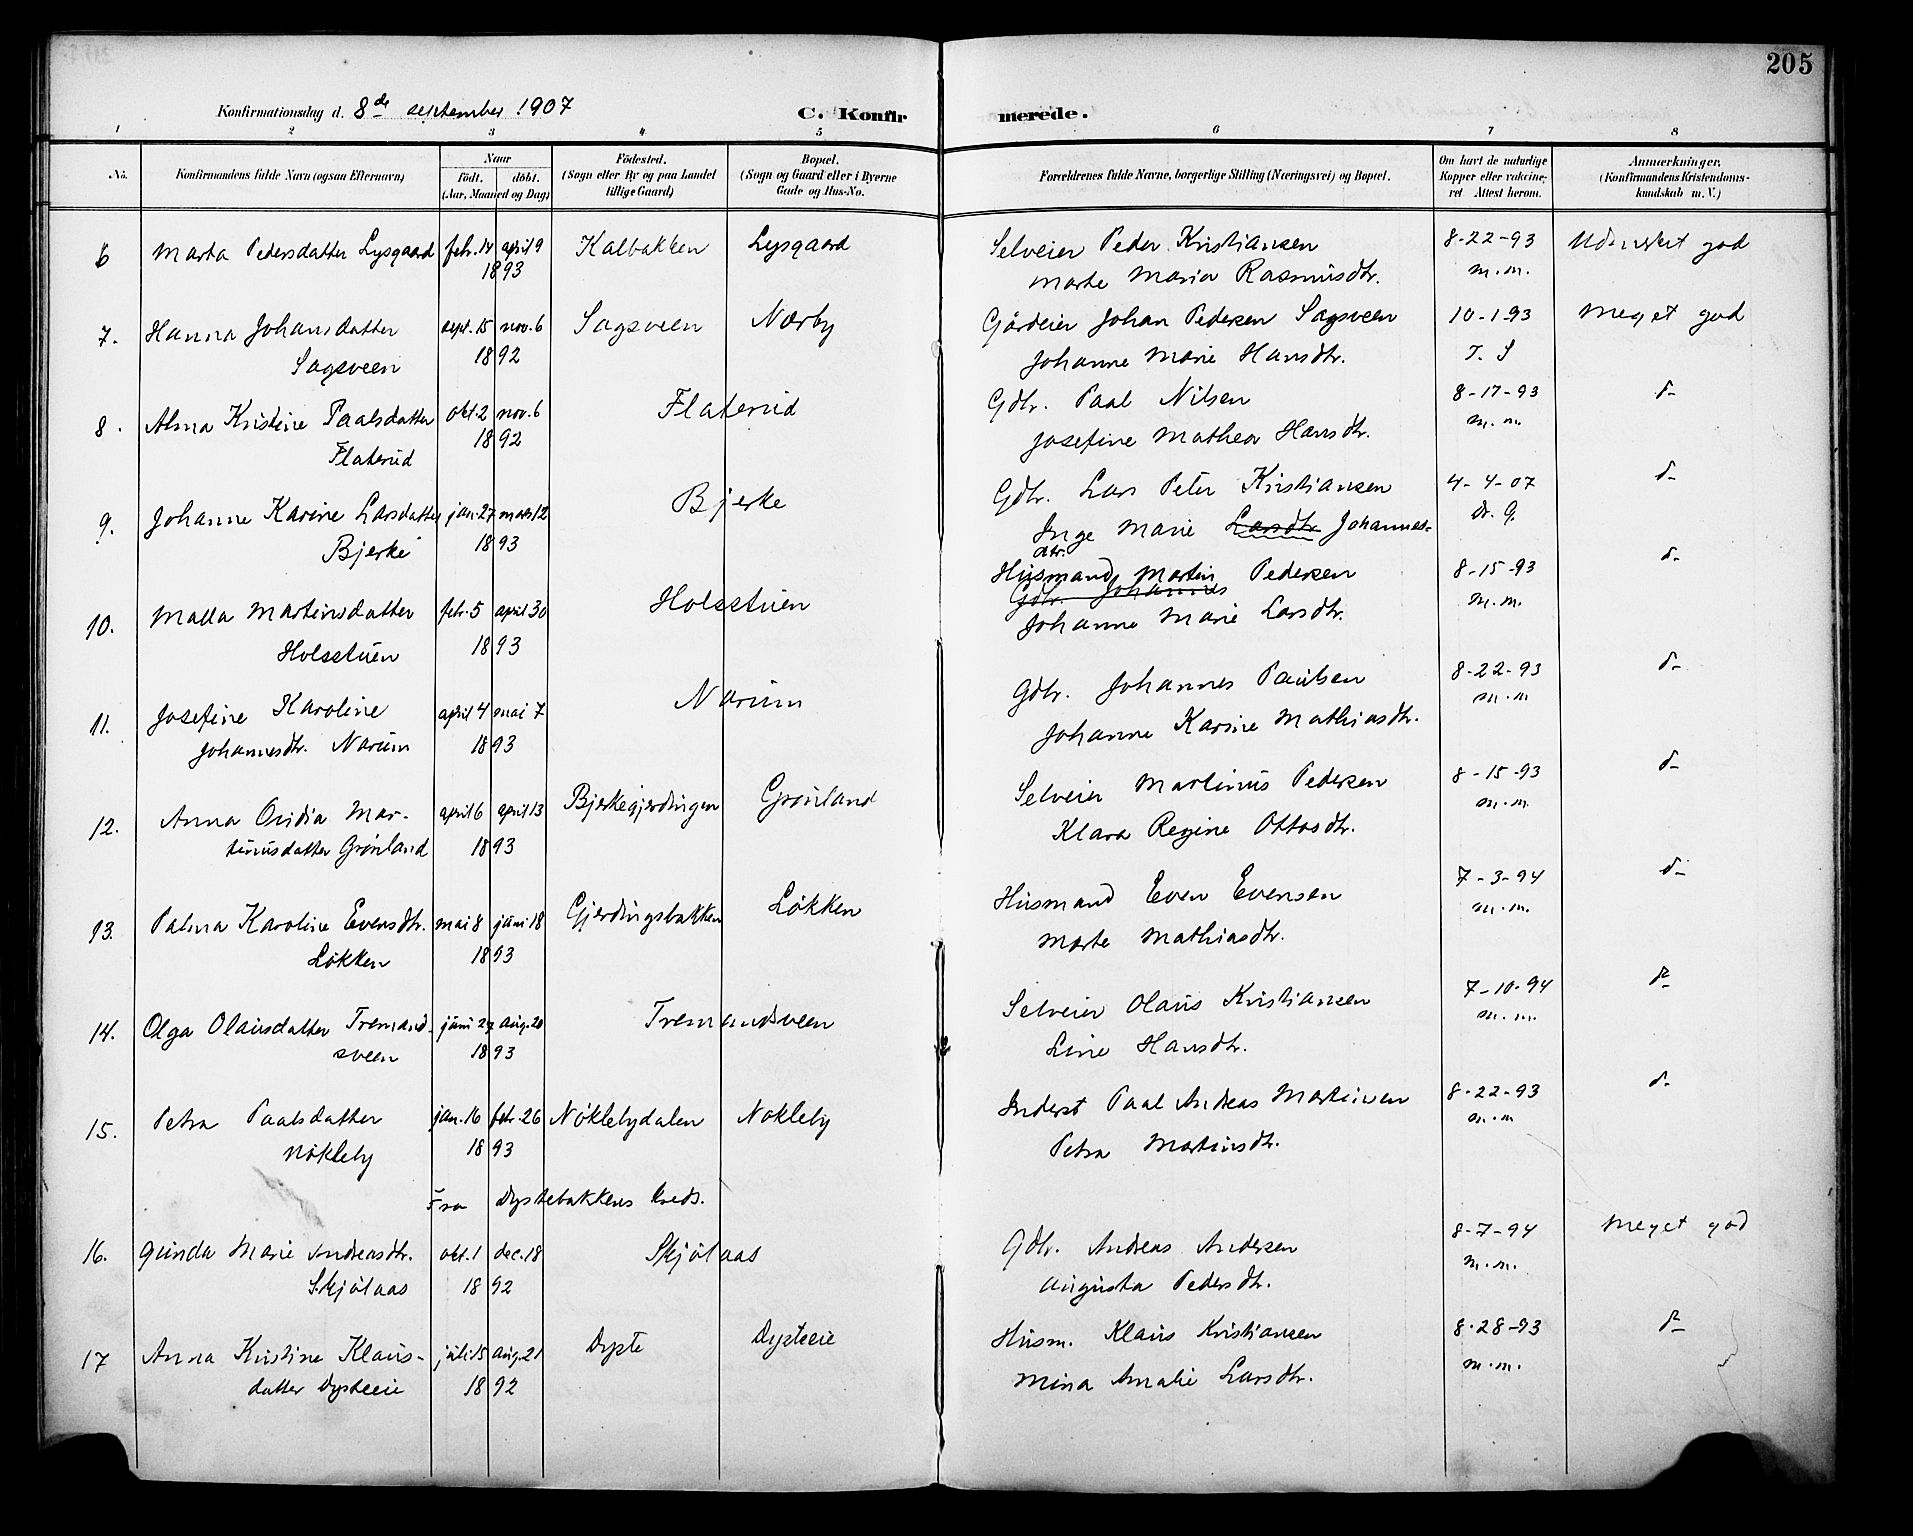 205
Konfirmationsdag d. 8de september 1907
C. Konfirmerede.
1 2 3 4 5 6 7 8
No.
Konfirmandens fulde Navn (ogsaa Efternavn)
Naar
født. døbt.
(Aar, Maaned og Dag)
Fødested.
(Sogn eller By og paa Landet
tillige Gaard)
Bopæl.
(Sogn og Gaard eller i Byerne
Gade og Hus-No.
Forældrenes fulde Navne, borgerlige Stilling (Næringsvei) og Bopæl.
Om havt de naturlige
Kopper eller vaccine-
ret Attest herom.
Anmærkninger,
(Konfirmandens Kristendoms-
kundskab m. V.)
6 Marta Pedersdatter Lysgaard febr. 14 april 9 Kalbakken Lysgaard Selveier Peder Kristiansen 8-22-93 Udmerket god
1893 Marte Maria Rasmusdtr. m.m.
7. Hanna Johansdatter sept. 15 nov. 6 Sagsveen Nærby Gårdeier Johan Pedersen Sagsveen 10-1-93 Meget god
Sagsveen 1892 Johanne Marie Hansdtr. T. S
8. Alma Kristine Paalsdatter okt. 2 nov. 6 Flaterud Gdbr. Paal Nilsen 8-17-93 d-
Flaterud 1892 Josefine Mathea Hansdtr. m.m.
9. Johanne Karine Larsdatter jan. 27 mars 12 Bjerke Gdbr. Lars Peter Kristiansen 4-4-07 d-
Bjerke 1893 Inge Marie Larsdtr Johannes- Dr. G.
dtr.
10. Malla Martinsdatter febr. 5 april 30 Holsstuen Husmand Martin Pedersen 8-15-93 d-
Gdbr. Johannes
Holsstuen 1893 Johanne Marie Larsdtr. m.m.
11. Josefine Karoline april 4 mai 7 Narum Gdbr. Johannes Paulsen 8-22-93 d-
Johannesdtr. Narum 1893 Johanne Karine Mathiasdtr. m.m
12. Anna Ovidia Mar- april 6 april 13 Bjerkegjerdingen Grønland Selveier Martinus Pedersen 8-15-93 d-
tinusdatter Grønland 1893 Klara Regine Ottosdtr. m.m.
13. Palma Karoline Evensdtr. mai 8 juni 18 Gjerdingsbakken Løkken Husmand Even Evensen 7-3-94 d-
Løkken 1893 Marte Mathiasdtr. m.m.
14. Olga Olausdatter Tremand- juni 27 aug. 20 Tremandsveen Selveier Olaus Kristiansen 7-10-94 d-
sveen 1893 Line Hansdtr. m.m.
15. Petra Paalsdatter jan. 16 febr. 26 Nøklebydalen Nøkleby Inderst Paal Andreas Martinsen 8-22-93 d-
Nøkleby 1893 Petra Martinsdtr. m.m
Fra Dystebakkens kreds.
16. Gunda Marie Andreasdtr. okt. 1 dec. 18 Skjølaas Gdbr. Andreas Andersen 8-7-94 Meget god
Skjølaas 1892 Augusta Pedersdtr. m.m.
17 Anna Kristine Klaus- juli 15 aug. 21 Dyste Dysteeie Husm. Klaus Kristiansen 8-28-93 d-
datter Dysteeie 1892 Mina Amalie Larsdtr. m.m.